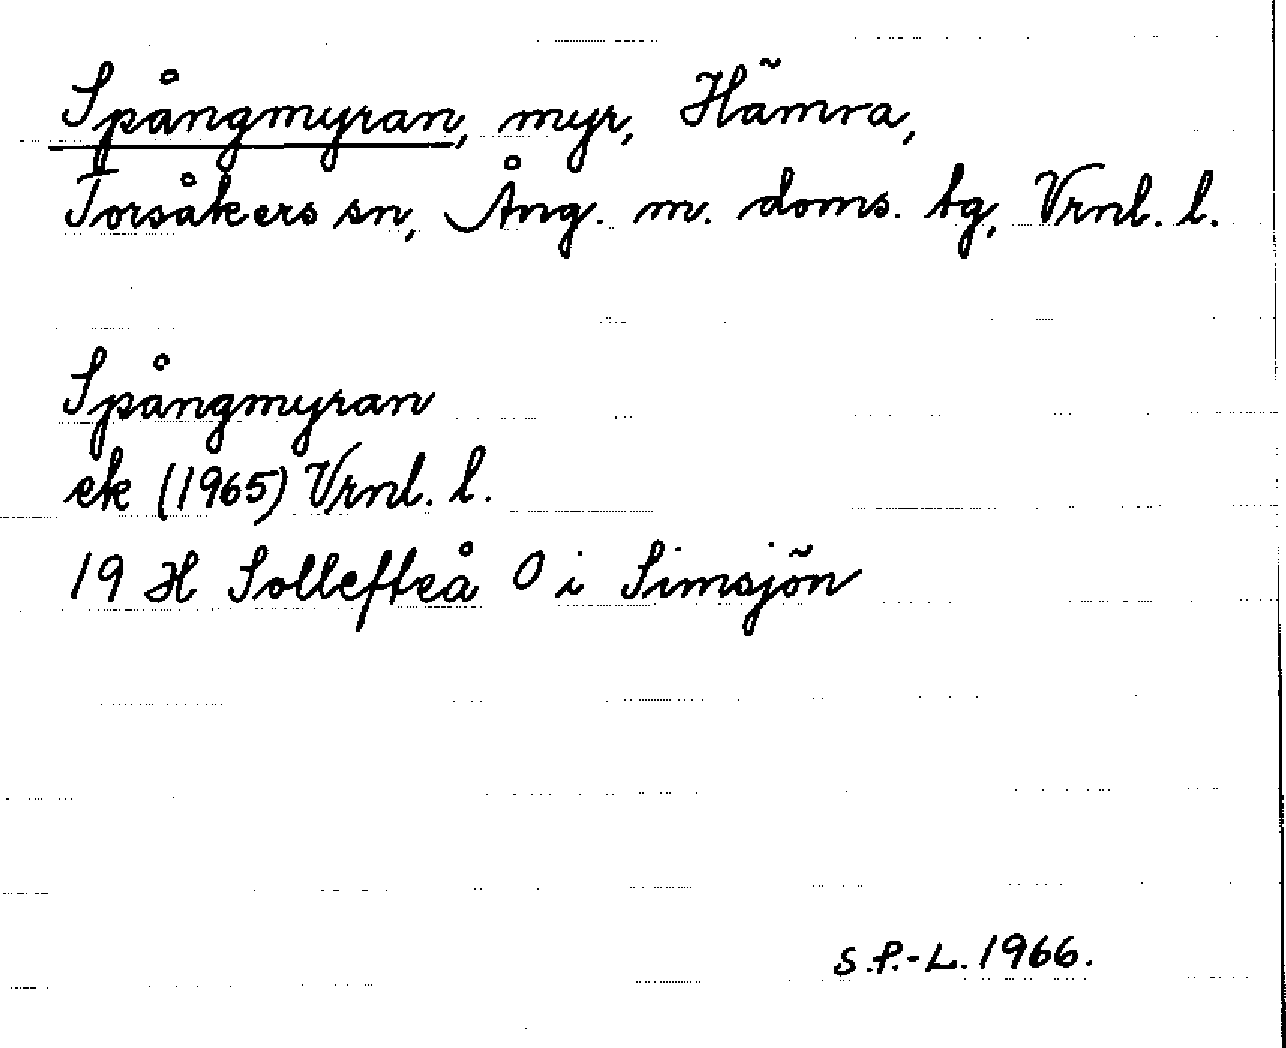 Spångmyran, myr, Hämra,
Torsåkers sn, Ång. m. doms. tg, Vrnl. l.
Spångmyran
ek (1965) Vrnl. l.
19 H Sollefteå O i Simsjön
S.P.-L. 1966.